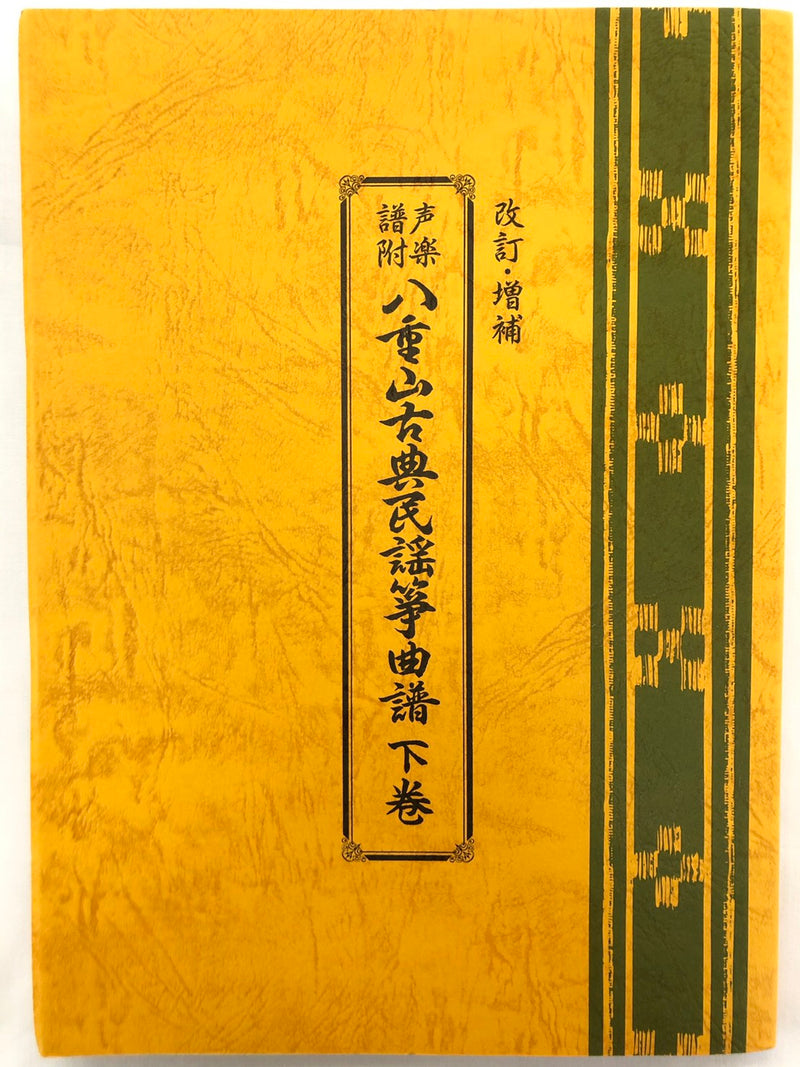 改訂・増補
声楽
譜附
八重山古典民謡箏曲譜 下巻